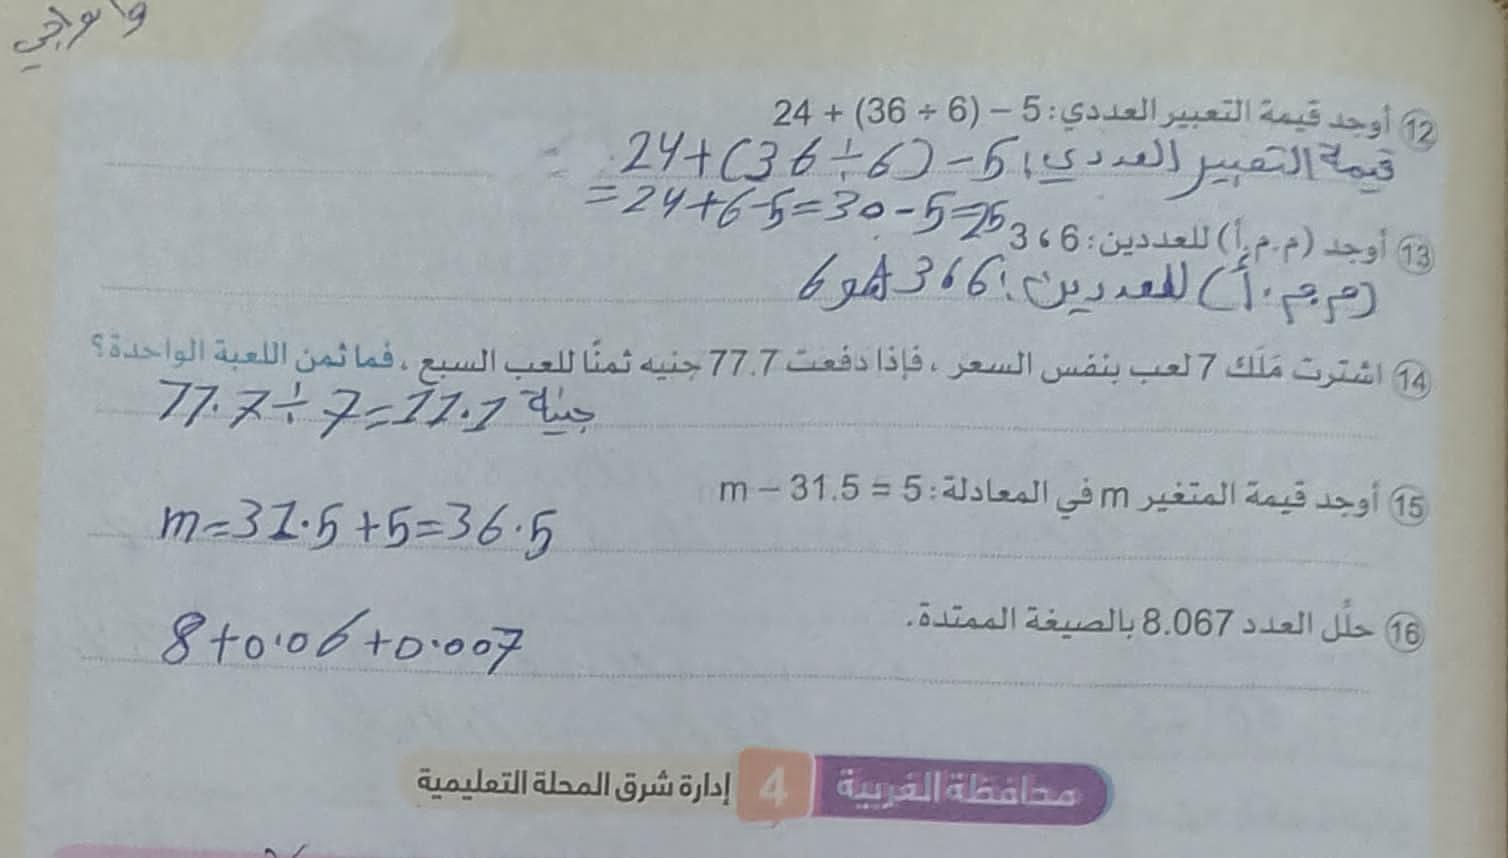 واجي
12 أوجد قيمة التعبير العددي: 24 + (36 ÷ 6) − 5
قيمة التعبير العددي: 24+(36÷6)−5 =
=24+6-5=30-5=25
13 أوجد (م.م.أ) للعددين: 6 ، 3
(م.م.أ) للعددين: 6، 3 هو 6
14 اشترت مَلَك 7 لعب بنفس السعر ، فإذا دفعت 77.7 جنيه ثمنًا للعب السبع ، فما ثمن اللعبة الواحدة؟
77.7÷7=11.1 جنية
15 أوجد قيمة المتغير m في المعادلة: m − 31.5 = 5
m=31.5+5=36.5
16 حلِّل العدد 8.067 بالصيغة الممتدة.
8+0.06+0.007
محافظة الغربية 4 إدارة شرق المحلة التعليمية